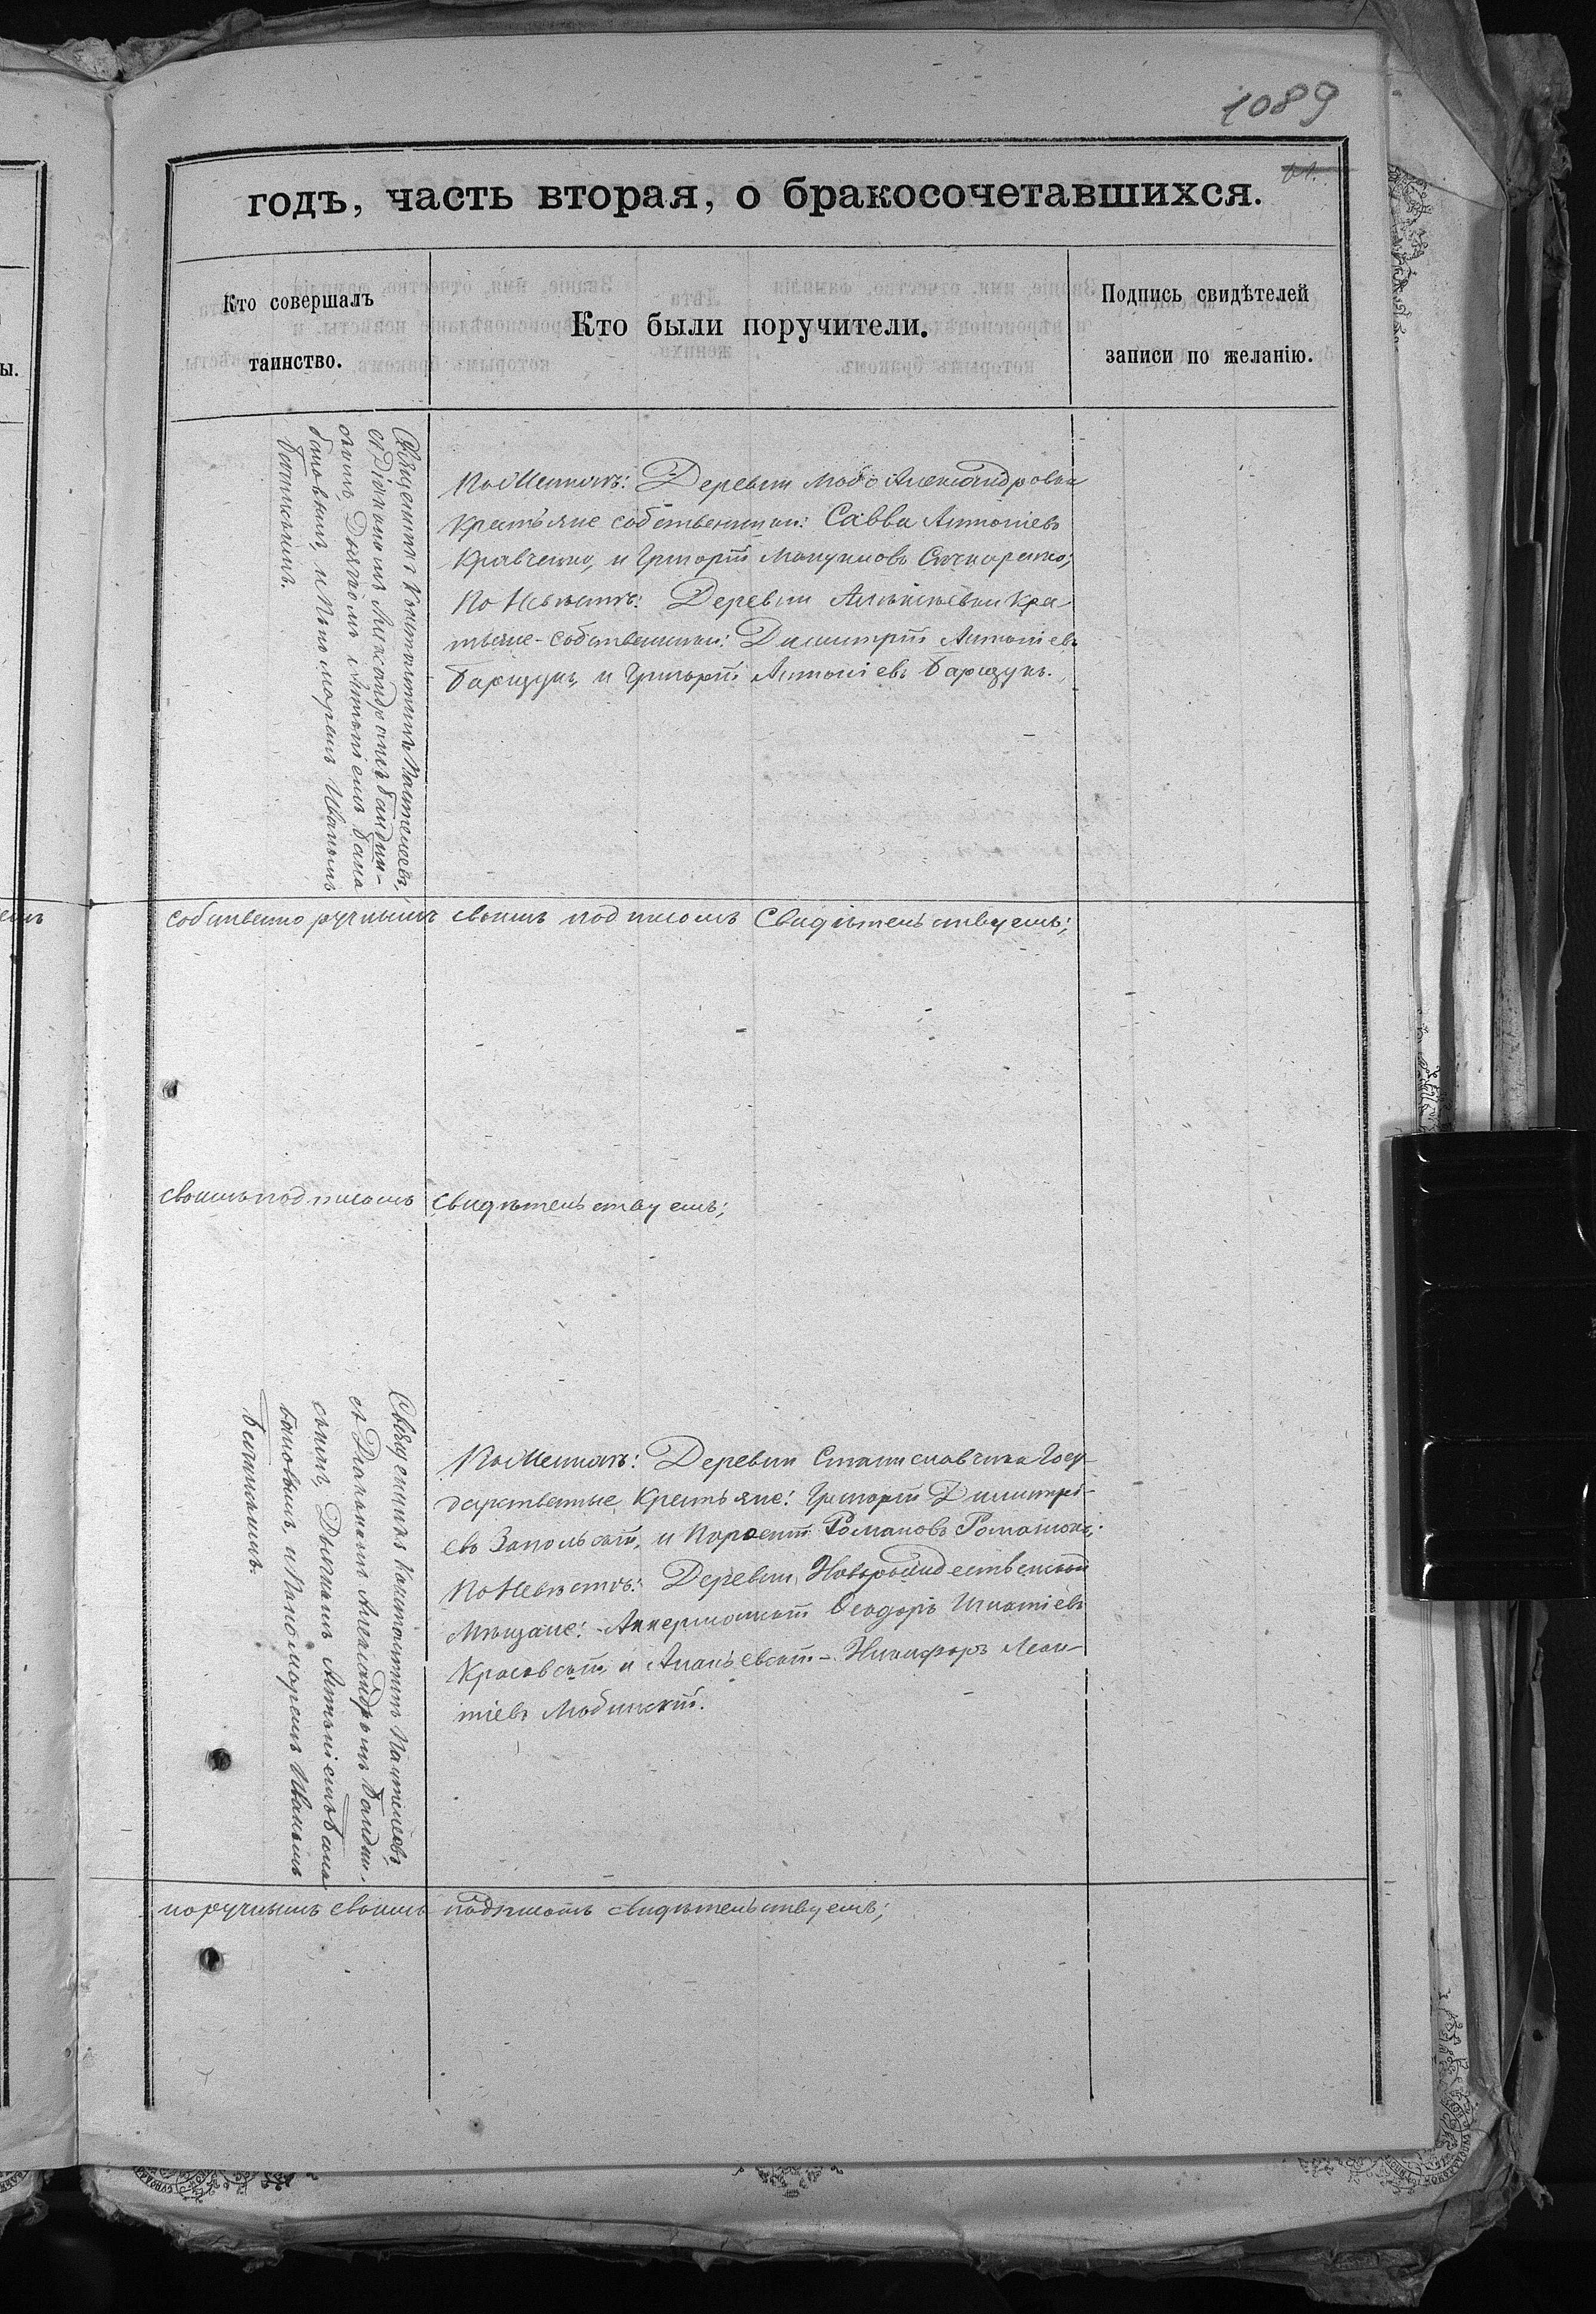 1089
годъ, часть вторая, о бракосочетавшихся.
Кто совершалъ
таинство.
Кто были поручители.
Подпись свидѣтелей
записи по желанію.
Священникъ Константинъ Пантелеевъ,
съ Діакономъ Александромъ Банди-
Дьячкомъ Антоніемъ Бала
бановымъ, и Пономаремъ Иваномъ
По Женихѣ: Деревни Ново Александровки
Крестьяне собственники: Савва Антоніевъ
Кравченко, и Григорій Макимовъ
По Невѣстѣ: Деревни Кре-
стьяне-собственники: Димитрій Антоніевъ
и Григорій Антоніевъ
собственно ручнымъ своимъ подписомъ Свидѣтельствуемъ;
своимъ подписомъ Свидѣтельствуемъ;
Священникъ Константинъ Пантелеевъ,
съ Діакономъ Александромъ Банди-
Дьячкомъ Антоніемъ Бала
бановымъ, и Пономаремъ Иваномъ
По Женихѣ: Деревни Станиславчика Госу-
дарственные Крестьяне: Григорій Димитрі-
евъ Запольскій, и Романовъ
По Невѣстѣ: Деревни Новорождественской
Мѣщане: Аккерманскій Ѳеодоръ Игнатіевъ
Красовскій, и Ананьевскій - Никифоръ Леон-
тіевъ
норучнымъ своимъ подписомъ свидѣтельствуемъ;